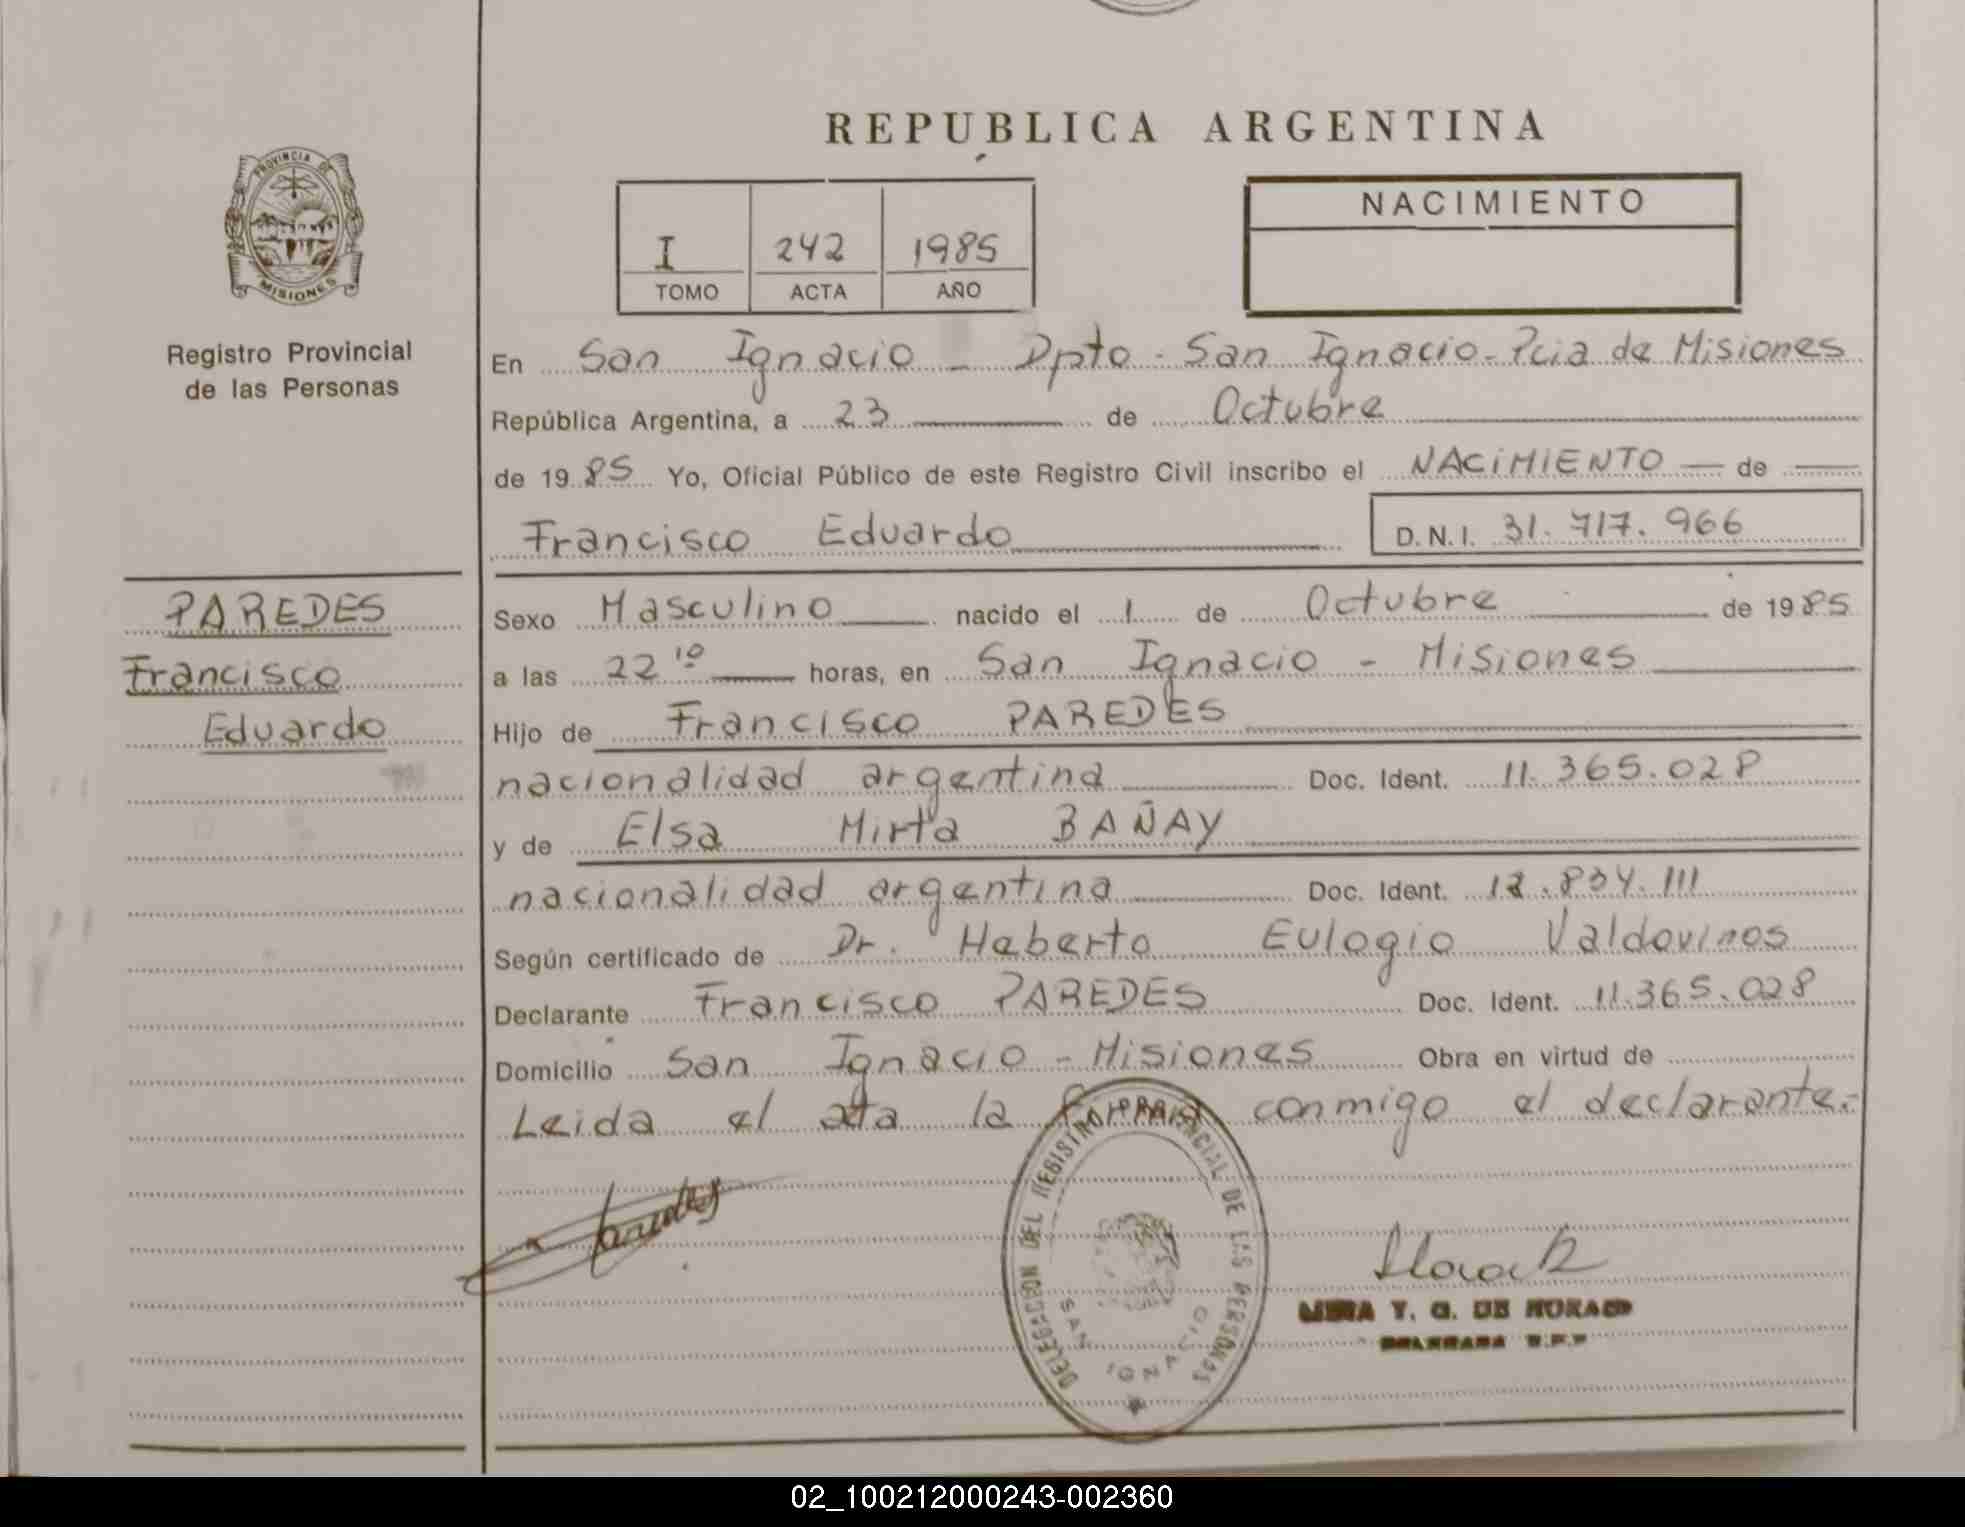 REPUBLICA ARGENTINA
PROVINCIA DE MISIONES
Registro Provincial
de las Personas
I 242 1985
TOMO ACTA AÑO
NACIMIENTO
En San Ignacio - Dpto - San Ignacio - Pcia de Misiones
República Argentina, a 23 de Octubre
de 1985 Yo, Oficial Público de este Registro Civil inscribo el NACIMIENTO de
Francisco Eduardo D.N.I. 31.717.966
PAREDES
Francisco
Eduardo
Sexo Masculino nacido el 1 de Octubre de 1985
a las 22 10 horas, en San Ignacio - Misiones
Hijo de Francisco PAREDES
nacionalidad argentina Doc. Ident. 11.365.028
y de Elsa Mirta BAÑAY
nacionalidad argentina Doc. Ident. 12.834.111
Según certificado de Dr. Heberto Eulogio Valdovinos
Declarante Francisco PAREDES Doc. Ident. 11.365.028
Domicilio San Ignacio - Misiones Obra en virtud de
Leida el acta la conmigo el declarante.-
Paredes
DELEGACION DEL REGISTRO PROVINCIAL DE LAS PERSONAS
SAN IGNACIO
Y. G. DE
02_100212000243-002360